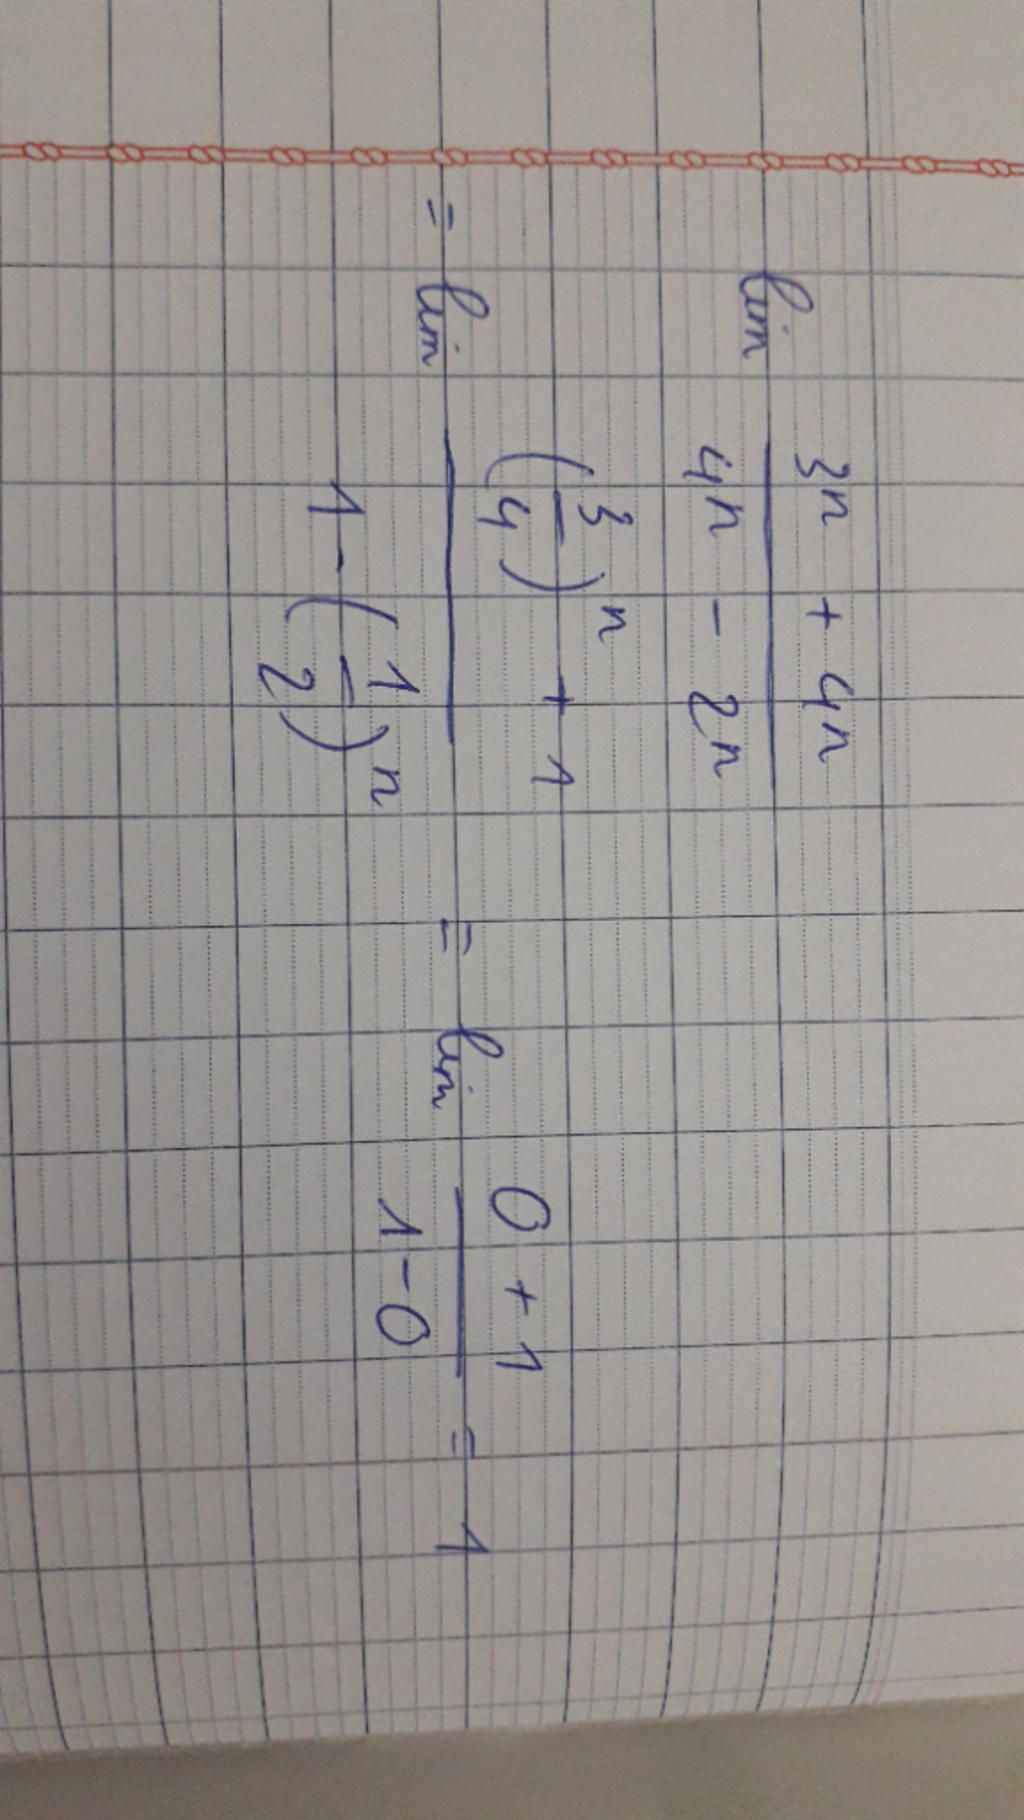 lim (3n + 4n)/(4n - 2n)
= lim ((3/4)^n + 1)/(1 - (1/2)^n) = lim (0 + 1)/(1 - 0) = 1